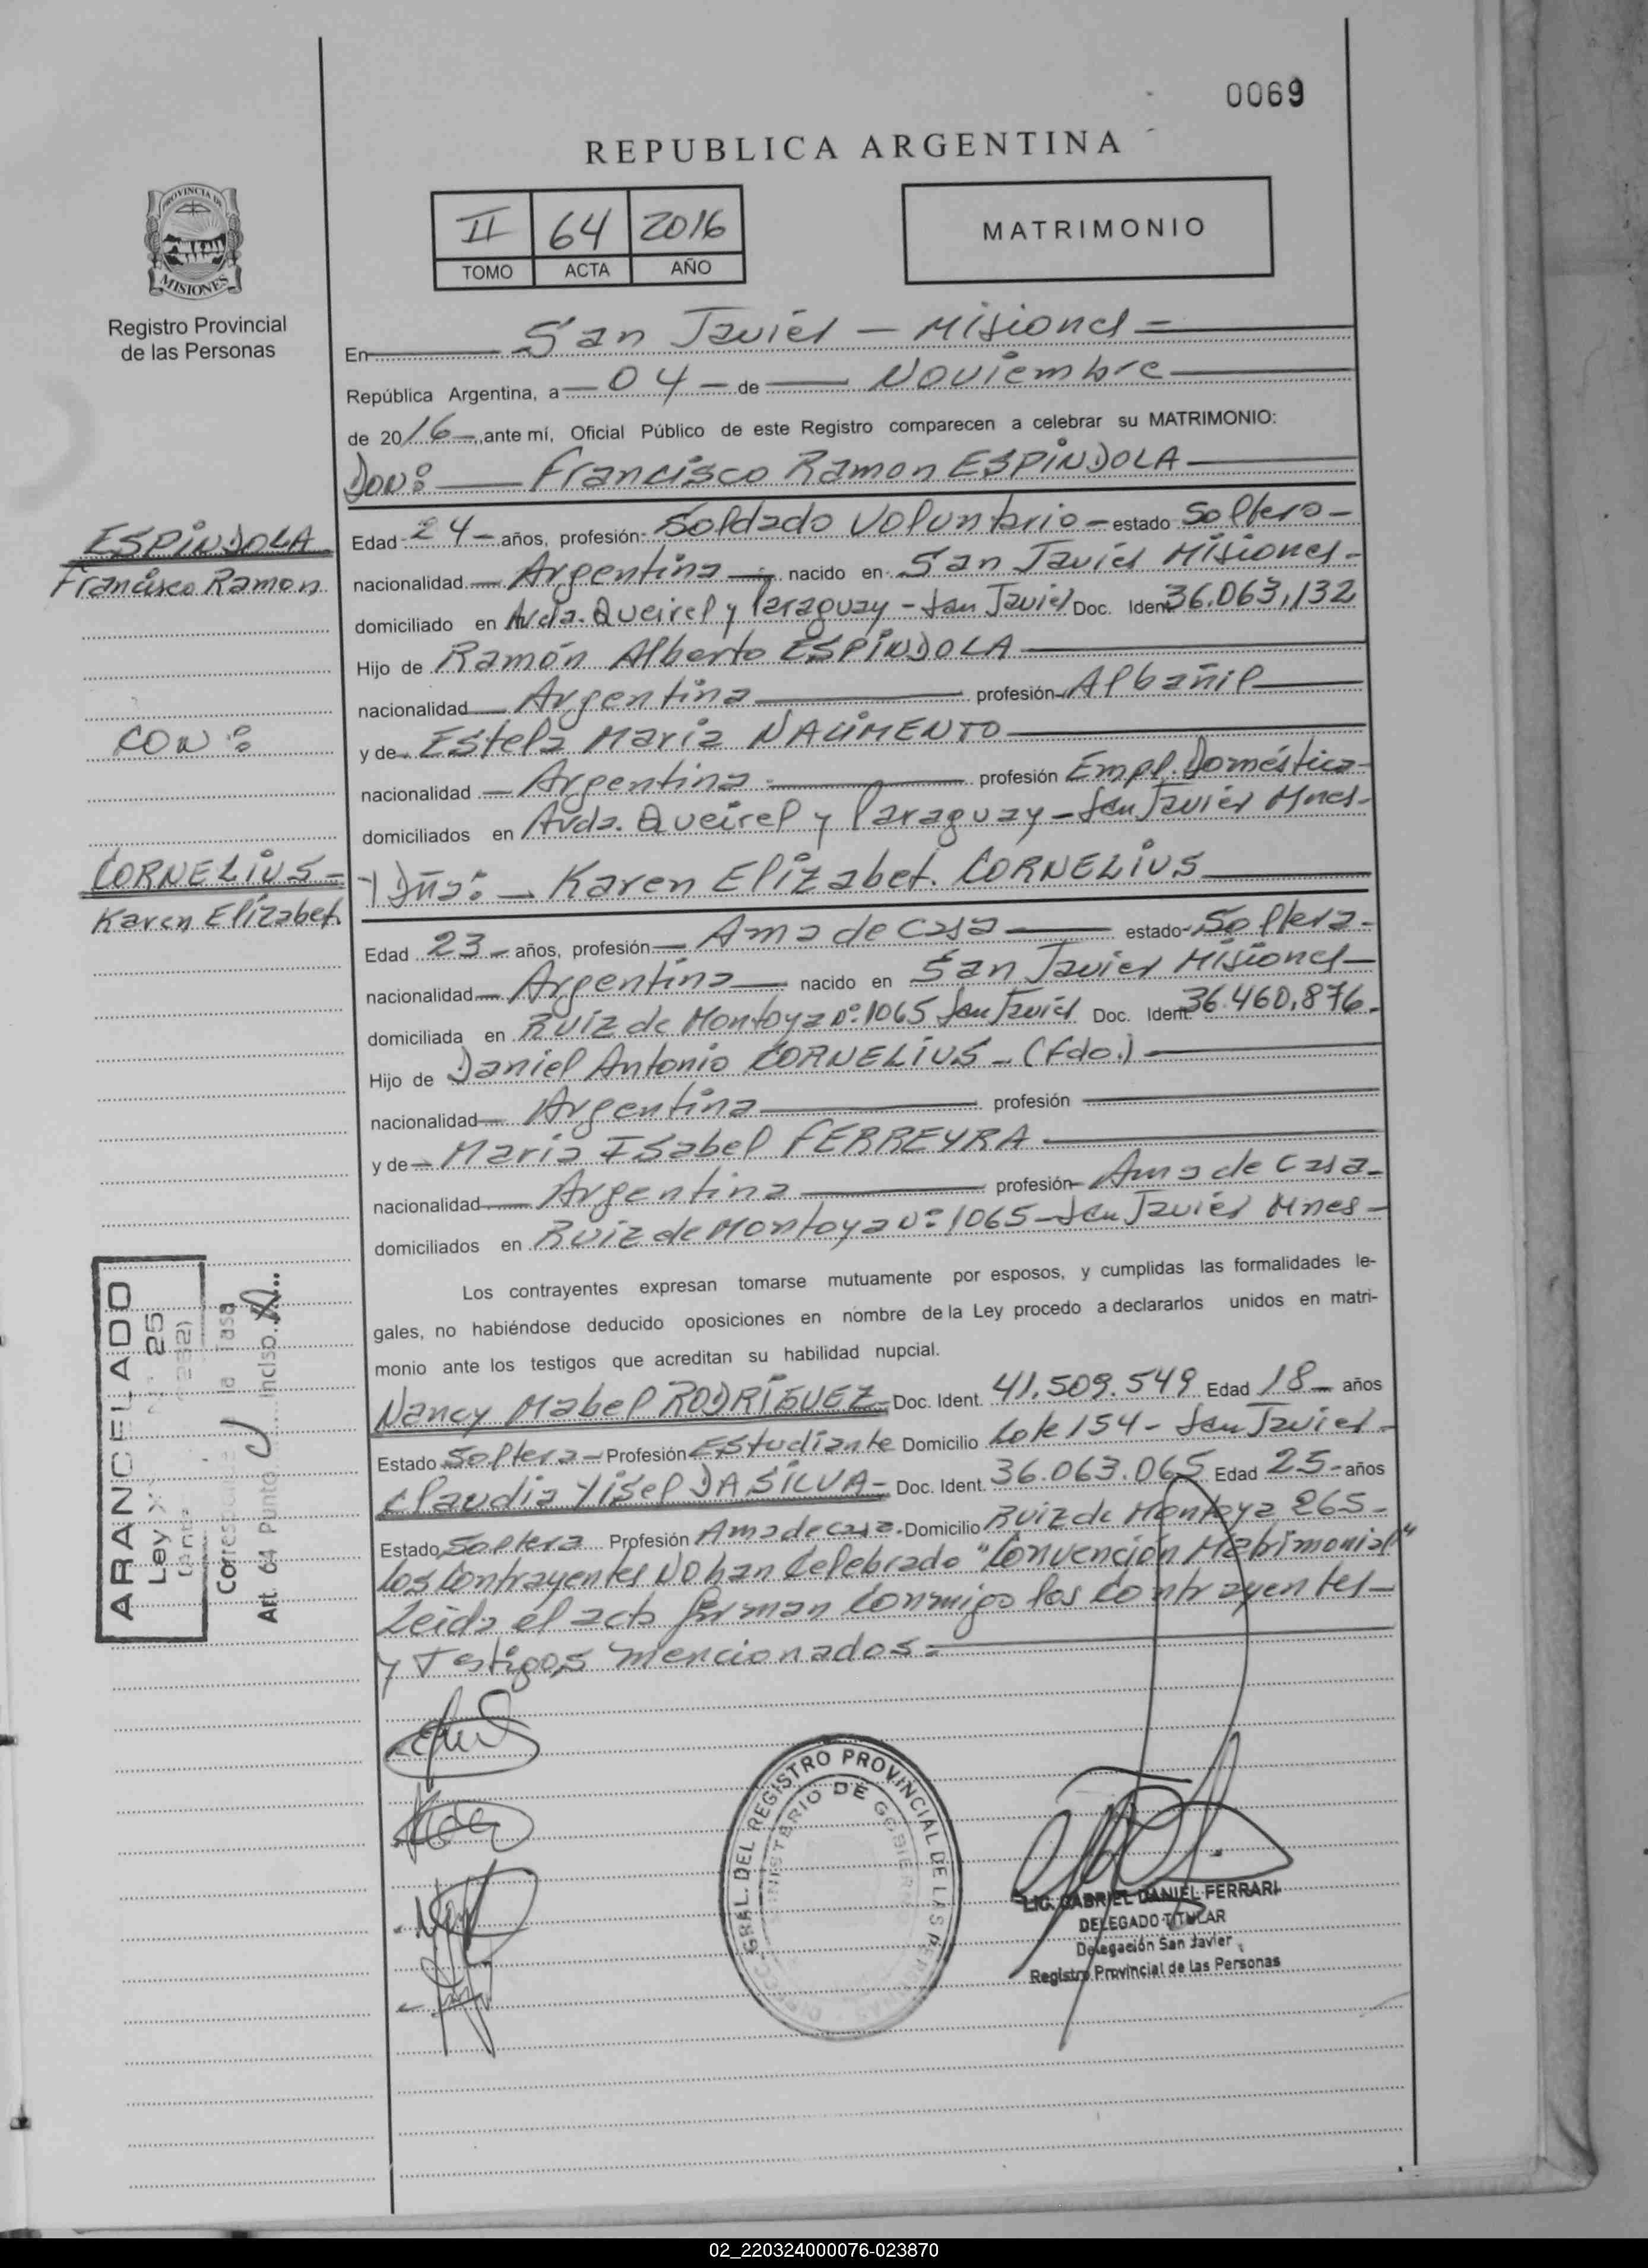 0069
REPUBLICA ARGENTINA
II 64 2016
TOMO ACTA AÑO
MATRIMONIO
PROVINCIA DE
MISIONES
Registro Provincial
de las Personas
En San Javier - Misiones =
República Argentina, a - 04 - de Noviembre
de 2016 -, ante mí, Oficial Público de este Registro comparecen a celebrar su MATRIMONIO:
Don: Francisco Ramon ESPINDOLA
ESPINDOLA
Francisco Ramon
CON:
CORNELIUS =
Karen Elizabet.
Edad 24 - años, profesión: Soldado Voluntario - estado Soltero -
nacionalidad Argentina nacido en San Javier Misiones -
domiciliado en Avda. Queirel y Paraguay - San Javier Doc. Ident 36.063,132
Hijo de Ramón Alberto ESPINDOLA
nacionalidad Argentina profesión Albañil
y de Estela Maria NACIMENTO
nacionalidad Argentina profesión Empl. Doméstica
domiciliados en Avda. Queirel y Paraguay - San Javier Mnes -
Y Dña: - Karen Elizabet. CORNELIUS
Edad 23 - años, profesión Ama de casa estado Soltera -
nacionalidad Argentina nacido en San Javier Misiones
domiciliada en Ruiz de Montoya nº. 1065 San Javier Doc. Ident 36.460,876.
Hijo de Daniel Antonio CORNELIUS - (fdo.)
nacionalidad Argentina profesión
y de Maria Isabel FERREYRA
nacionalidad Argentina profesión Ama de casa -
domiciliados en Ruiz de Montoya nº 1065 - San Javier Mnes -
Los contrayentes expresan tomarse mutuamente por esposos, y cumplidas las formalidades le-
gales, no habiéndose deducido oposiciones en nombre de la Ley procedo a declararlos unidos en matri-
monio ante los testigos que acreditan su habilidad nupcial.
Nancy Mabel RODRÍGUEZ - Doc. Ident. 41.509.549 Edad 18 - años
Estado Soltera - Profesión Estudiante Domicilio Lote 154 - San Javier -
Claudia Yisel DA SILVA - Doc. Ident. 36.063.065 Edad 25 - años
Estado Soltera Profesión Ama de casa. Domicilio Ruiz de Montoya 265 -
Los Contrayentes NO han Celebrado "Convención Matrimonial"
Leida el acta firman Conmigo los Contrayentes -
y Testigos mencionados =
ARANCELADO
Ley X 25
Corresp la Tasa
Art. 64 Punto inciso
DIRECC. GRAL. DEL REGISTRO PROVINCIAL DE LAS PERSONAS
MINISTERIO DE GOBIERNO
LIC. GABRIEL DANIEL FERRARI
DELEGADO TITULAR
Delegación San Javier
Registro Provincial de las Personas
02_220324000076-023870